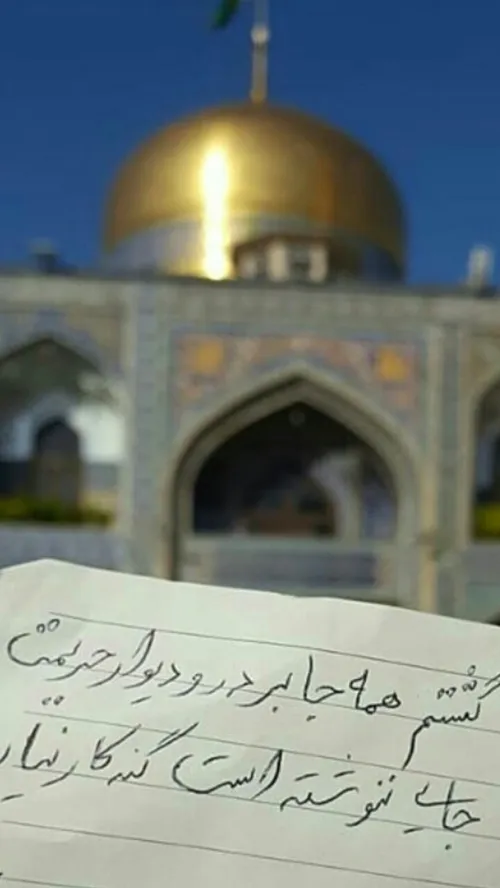 گشتم همه جا بر در و دیوار حریمت
جایی ننوشته است گنه کار نیاید